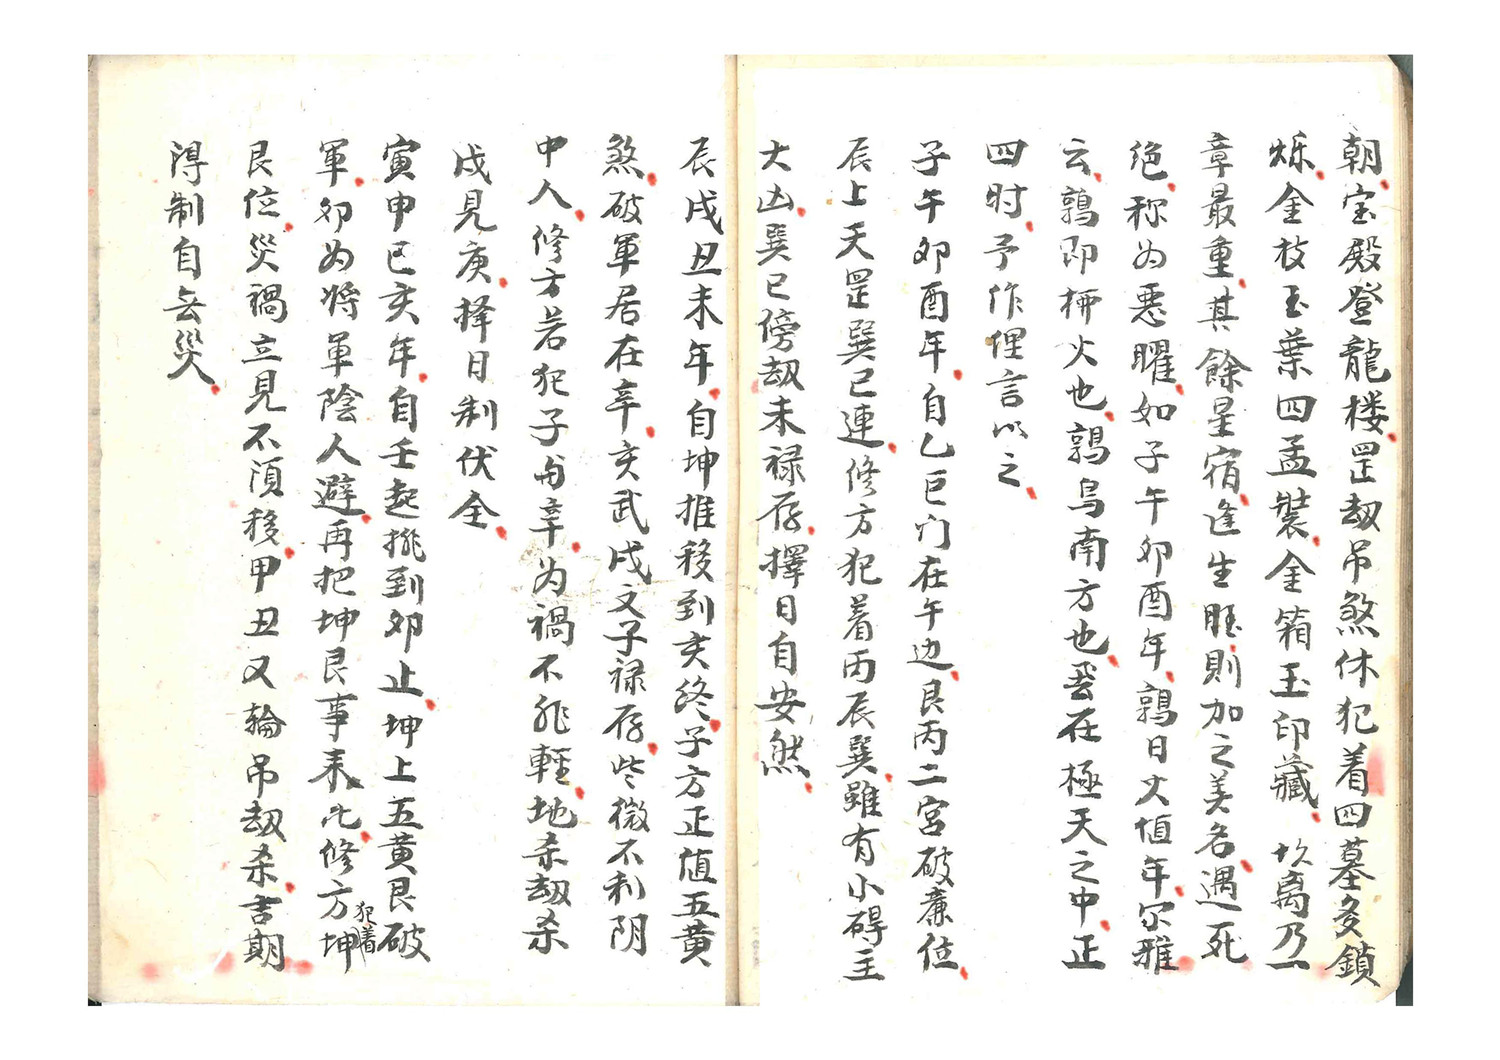 朝宝殿登龍楼罡劫吊煞休犯着四墓多鎖
烁金枝玉葉四孟裝金箱玉印藏坎离乃一
章最重其餘星宿逢生旺則加之美名遇死
绝称为恶曜如子午卯酉年鶉日火值年尔雅
云鶉即柳火也鶉鸟南方也在極天之中正
四时予作俚言以之
子午卯酉年自乙巨门在午边艮丙二宫破廉位
辰上天罡巽巳連修方犯着丙辰巽雖有小碍主
大凶巽巳傍劫未禄存擇日自安然
辰戌丑未年自坤推移到亥終子方正值五黄
煞破軍居在辛亥武戌文子禄存些微不利阴
中人修方若犯子与辛为禍不非輕地杀劫杀
戌見庚择日制伏全
寅申巳亥年自壬起挑到卯止坤上五黄艮破
軍卯为将軍陰人避再把坤艮事来比修方犯着坤
艮位災禍立見不須移甲丑又輪吊劫杀吉期
得制自无災